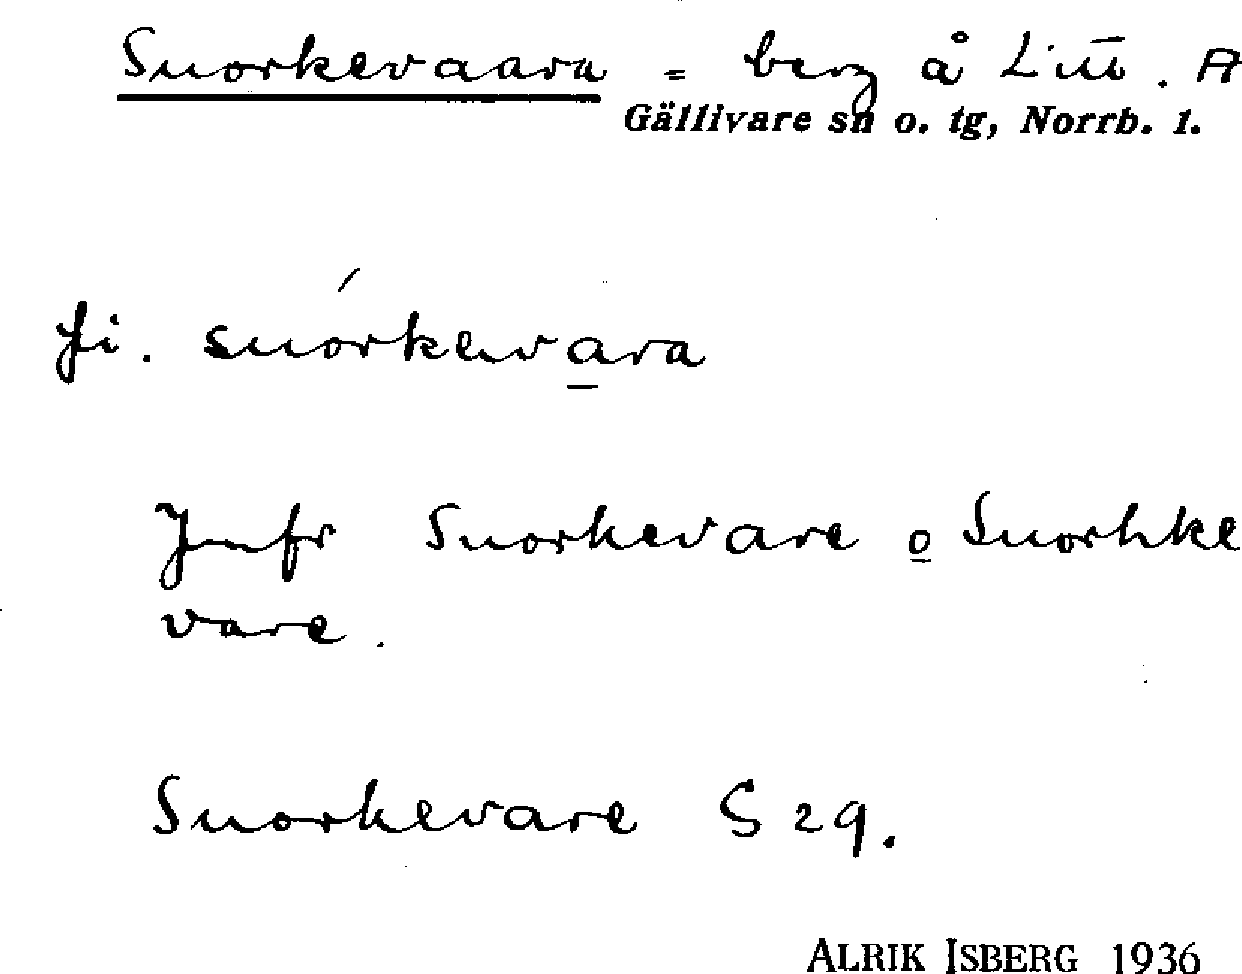 Snorkevaara = berg å Litt. A
Gällivare sn o. tg, Norrb. l.
fi. snórkevara
Jmfr Snorkevare o Snorhke
vare.
Snorkevare S 29.
ALRIK ISBERG 1936